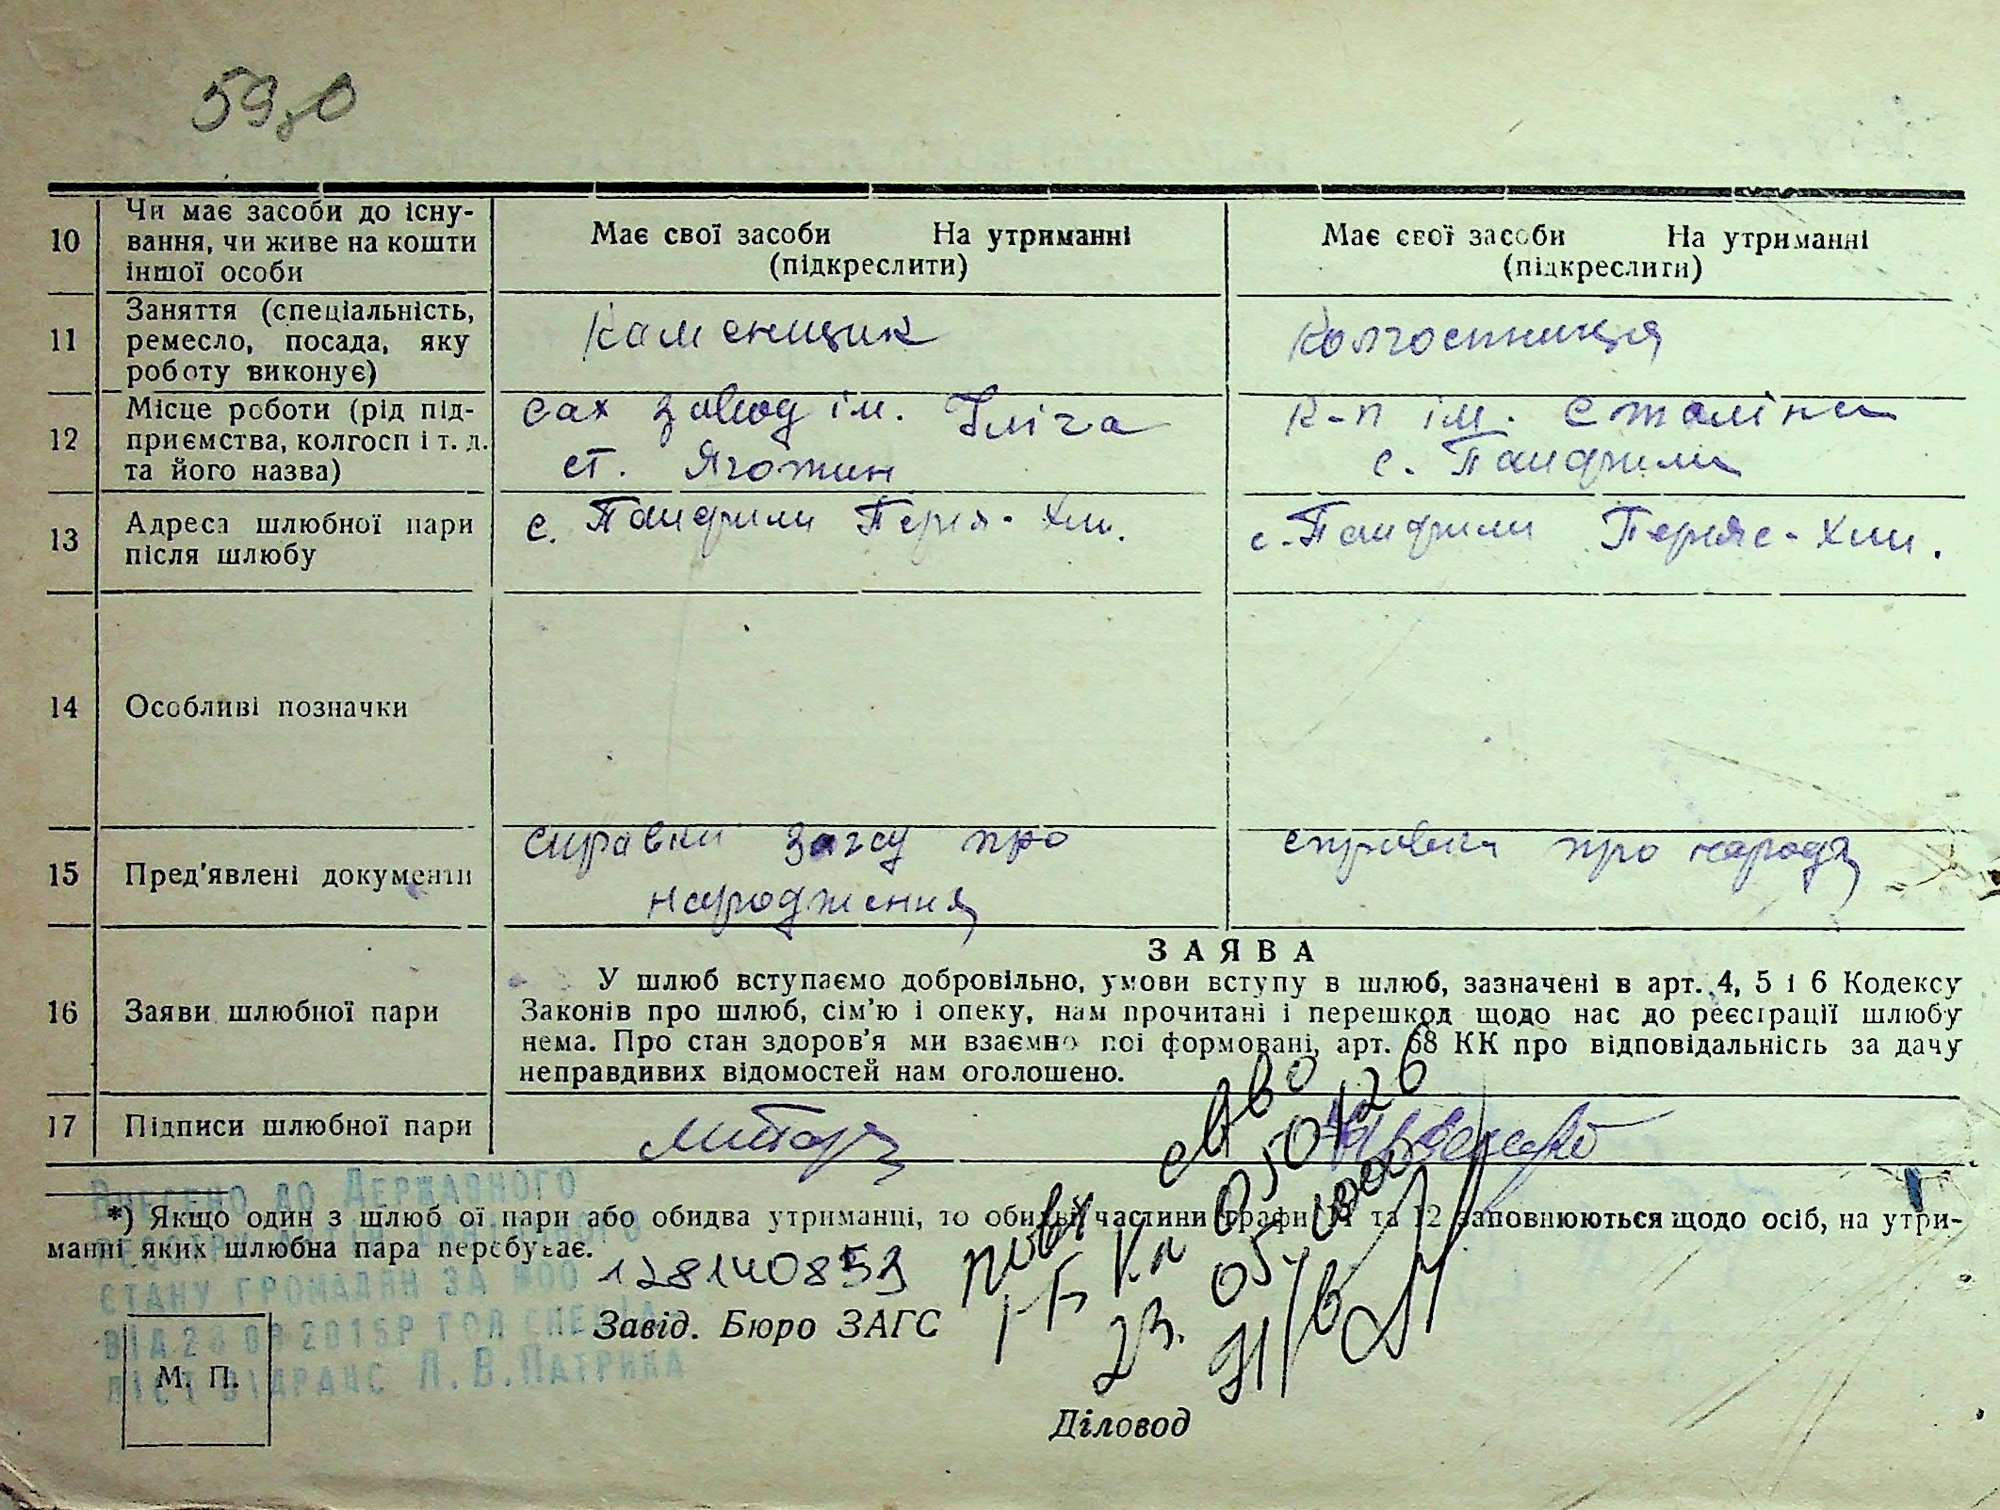 10 Чи має засоби до існу-
вання, чи живе на кошти
іншої особи
Має свої засоби На утриманні
(підкреслити)
Має свої засоби На утриманні
(підкреслити)
11 Заняття (спеціальність,
ремесло, посада, яку
роботу виконує)
Каменщик
Колгоспниця
12 Місце роботи (рід під-
приємства, колгосп і т. д.
та його назва)
сах завод ім. Ілліча
ст. Яготин
к-п ім. Сталіна
с. Панфили
13 Адреса шлюбної пари
після шлюбу
с. Панфили Перея-Хм.
с. Панфили Перяс-Хм.
14 Особливі позначки
15 Пред'явлені документи
справки загсу про
народження
справки про народ
16 Заяви шлюбної пари
ЗАЯВА
У шлюб вступаємо добровільно, умови вступу в шлюб, зазначені в арт. 4, 5 і 6 Кодексу
Законів про шлюб, сім'ю і опеку, нам прочитані і перешкод щодо нас до реєстрації шлюбу
нема. Про стан здоров'я ми взаємно поінформовані, арт. 68 КК про відповідальність за дачу
неправдивих відомостей нам оголошено.
17 Підписи шлюбної пари
*) Якщо один з шлюбної пари або обидва утриманці, то обидві частини графи 11 та 12 заповнюються щодо осіб, на утри-
манні яких шлюбна пара перебуває.
128140859
Завід. Бюро ЗАГС
М. П.
Діловод
Внесено до Державного
реєстру
стану громадян за №00
від 2015р гол спеціа-
ліст ВДРАЦС Л.В.Патрика